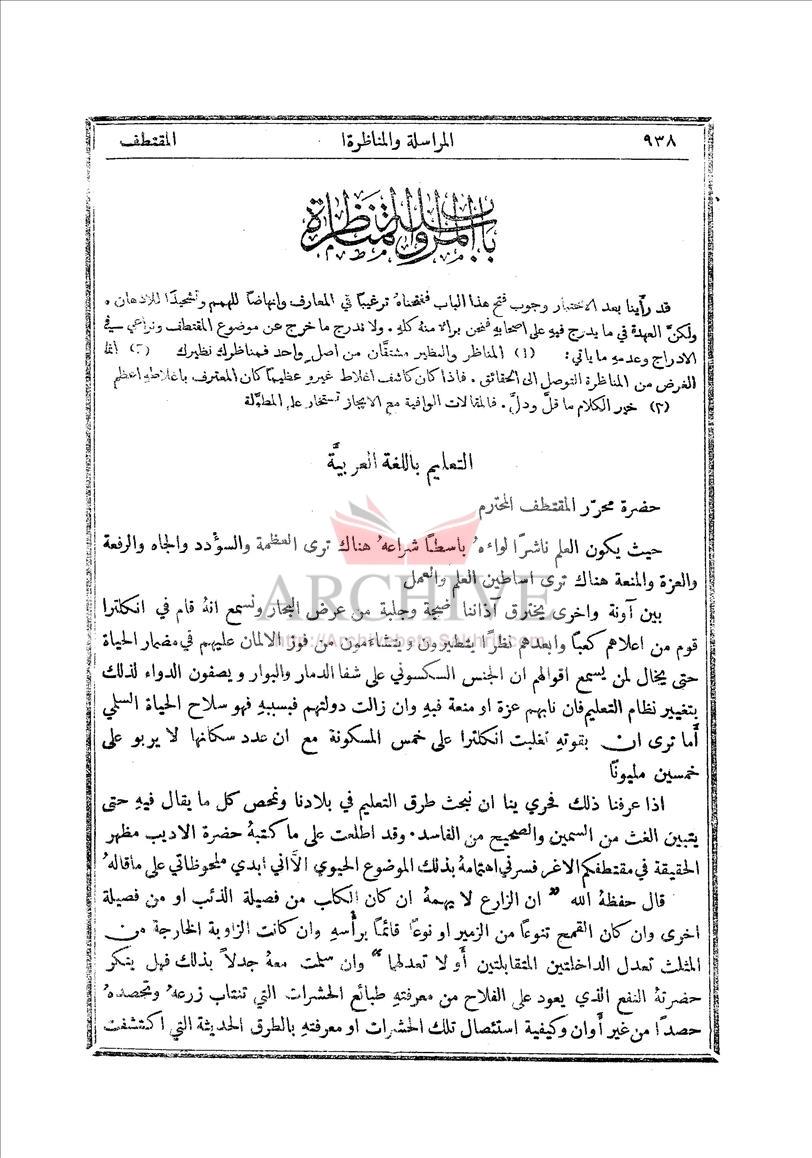 ٩٣٨ المراسلة والمناظرة المقتطف
باب المراسلة والمناظرة
قد رأينا بعد الاختبار وجوب فتح هذا الباب ففتحناهُ ترغيبًا في المعارف وانهاضًا للهمم وتشحيذًا للاذهان .
ولكنَّ العهدة في ما يدرج فيهِ على اصحابهِ فنحن برالا منهُ كلهِ . ولا ندرج ما خرج عن موضوع المقتطف ونراعي في
الادراج وعدمهِ ما ياتي : (١) المناظر والنظير مشتقَّان من اصل واحد فمناظرك نظيرك (٢) انما
الغرض من المناظرة التوصل الى الحقائق . فاذا كان كاشف اغلاط غيرهِ عظيمًا كان المعترف باغلاطهِ اعظم
(٣) خير الكلام ما قلَّ ودلَّ . فالمقالات الوافية مع الايجاز تستخار على المطوَّلة
التعليم باللغة العربيَّة
حضرة محرّر المقتطف المحترم
حيث يكون العلم ناشرًا لواءهُ باسطًا شراعهُ هناك ترى العظمة والسؤدد والجاه والرفعة
والعزة والمنعة هناك ترى اساطين العلم والعمل
ARCHIVE
بين آونة واخرى يخترق آذاننا ضجة وجلبة من عرض البحار ونسمع انهُ قام في انكلترا
http://Archivebeta.Sakhrit.com
قوم من اعلاهم كعبًا وابعدهم نظرًا يتطيرون ويتشاءمون من فوز الالمان عليهم في مضمار الحياة
حتى يخال لمن يسمع اقوالهم ان الجنس السكسوني على شفا الدمار والبوار و يصفون الدواء لذلك
بتغيير نظام التعليم فان نابهم عزة او منعة فبهِ وان زالت دولتهم فبسببهِ فهو سلاح الحياة السلي
أما ترى ان بقوتهِ تغلبت انكلترا على خمس المسكونة مع ان عدد سكانها لا يربو على
خمسين مليونًا
اذا عرفنا ذلك فحري بنا ان نبحث طرق التعليم في بلادنا ونمحص كل ما يقال فيهِ حتى
يتبين الغث من السمين والصحيح من الفاسد . وقد اطلعت على ما كتبهُ حضرة الاديب مظهر
الحقيقة في مقتطفكم الاغر فسرني اهتمامهُ بذلك الموضوع الحيوي الاَّ اني ابدي ملحوظاتي على ما قالهُ
قال حفظهُ الله " ان الزارع لا يهمهُ ان كان الكلب من فصيلة الذئب او من فصيلة
اخرى وان كان القمح تنوعًا من الزمير او نوعًا قائمًا برأسهِ وان كانت الزاوية الخارجة من
المثلث تعدل الداخلتين المتقابلتين أو لا تعدلها " وان سلمت معهُ جدلاً بذلك فهل ينكر
حضرتهُ النفع الذي يعود على الفلاح من معرفتهِ طبائع الحشرات التي تنتاب زرعهُ وتحصدهُ
حصدًا من غير أوان وكيفية استئصال تلك الحشرات او معرفتهِ بالطرق الحديثة التي اكتشفت